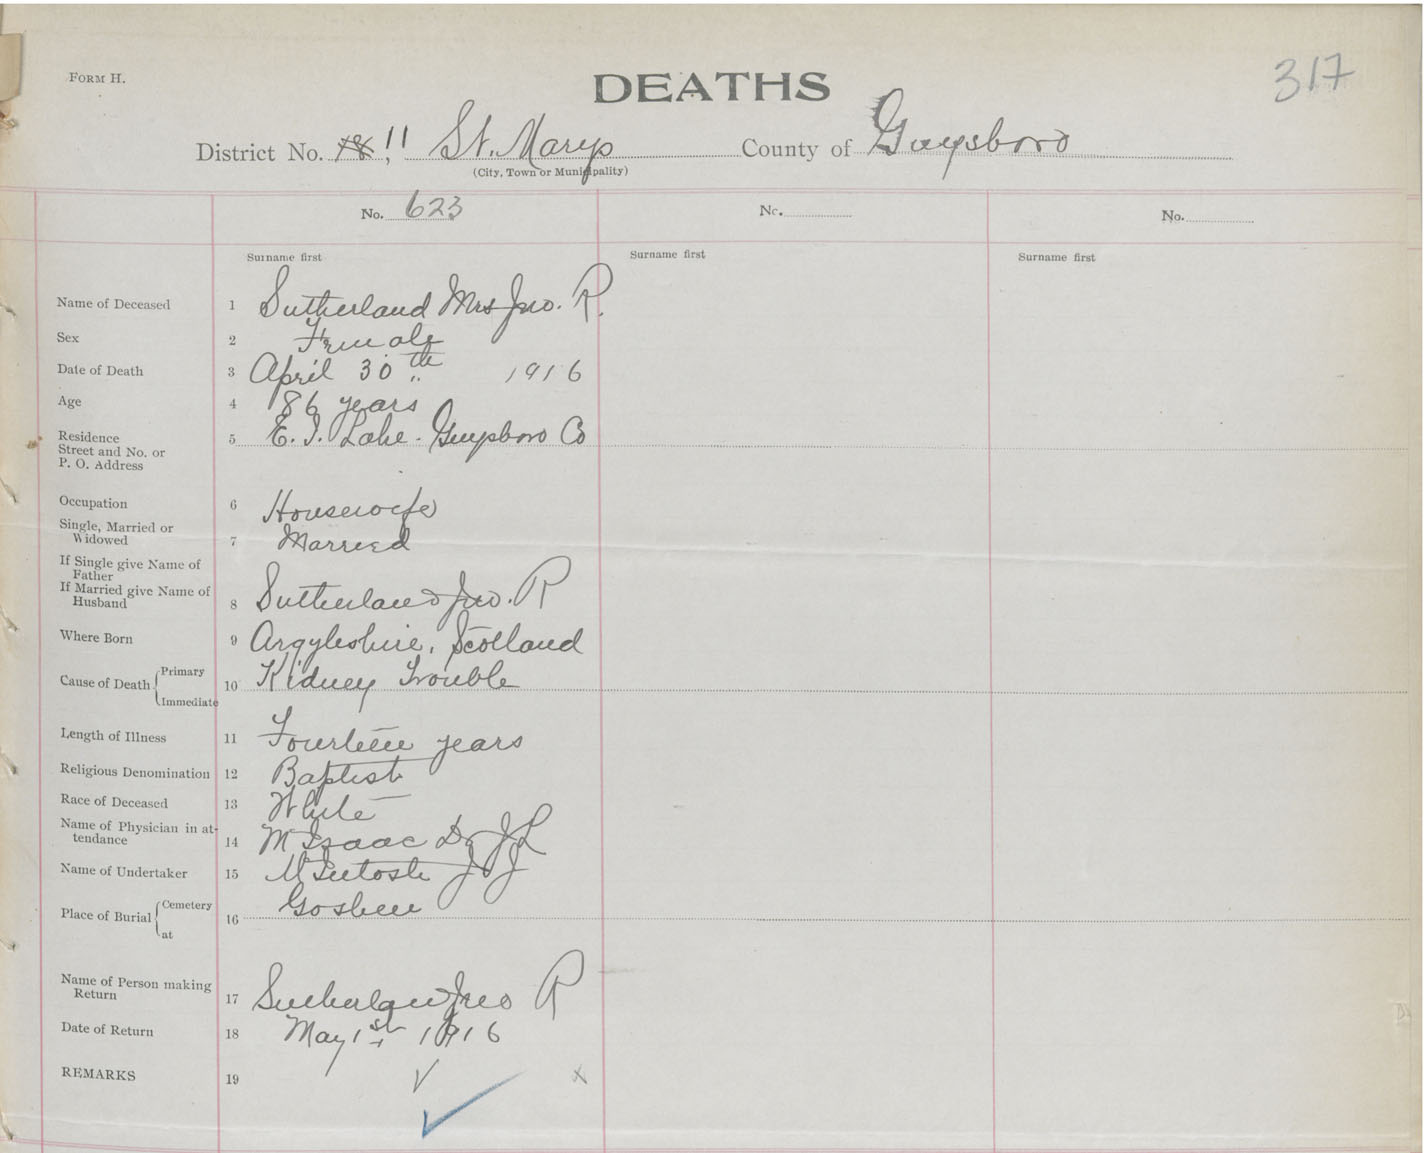 FORM H.
DEATHS
317
District No. 18, 11 St. Marys County of Guysboro
(City, Town or Municipality)
No. 623 No. No.
Surname first Surname first Surname first
Name of Deceased 1 Sutherland Mrs Jno. R.
Sex 2 Female
Date of Death 3 April 30th 1916
Age 4 86 years
Residence
Street and No. or
P. O. Address 5 E. I. Lake. Guysboro Co
Occupation 6 Housewife
Single, Married or
Widowed 7 Married
If Single give Name of
Father
If Married give Name of
Husband 8 Sutherland Jno. R
Where Born 9 Argyleshire, Scotland
Cause of Death Primary
Immediate 10 Kidney Trouble
Length of Illness 11 Fourteen years
Religious Denomination 12 Baptist
Race of Deceased 13 White
Name of Physician in at-
tendance 14 McIsaac Dr J L
Name of Undertaker 15 McIntosh J J
Place of Burial Cemetery
at 16 Goshen
Name of Person making
Return 17 Sutherland Jno R
Date of Return 18 May 1st 1916
REMARKS 19